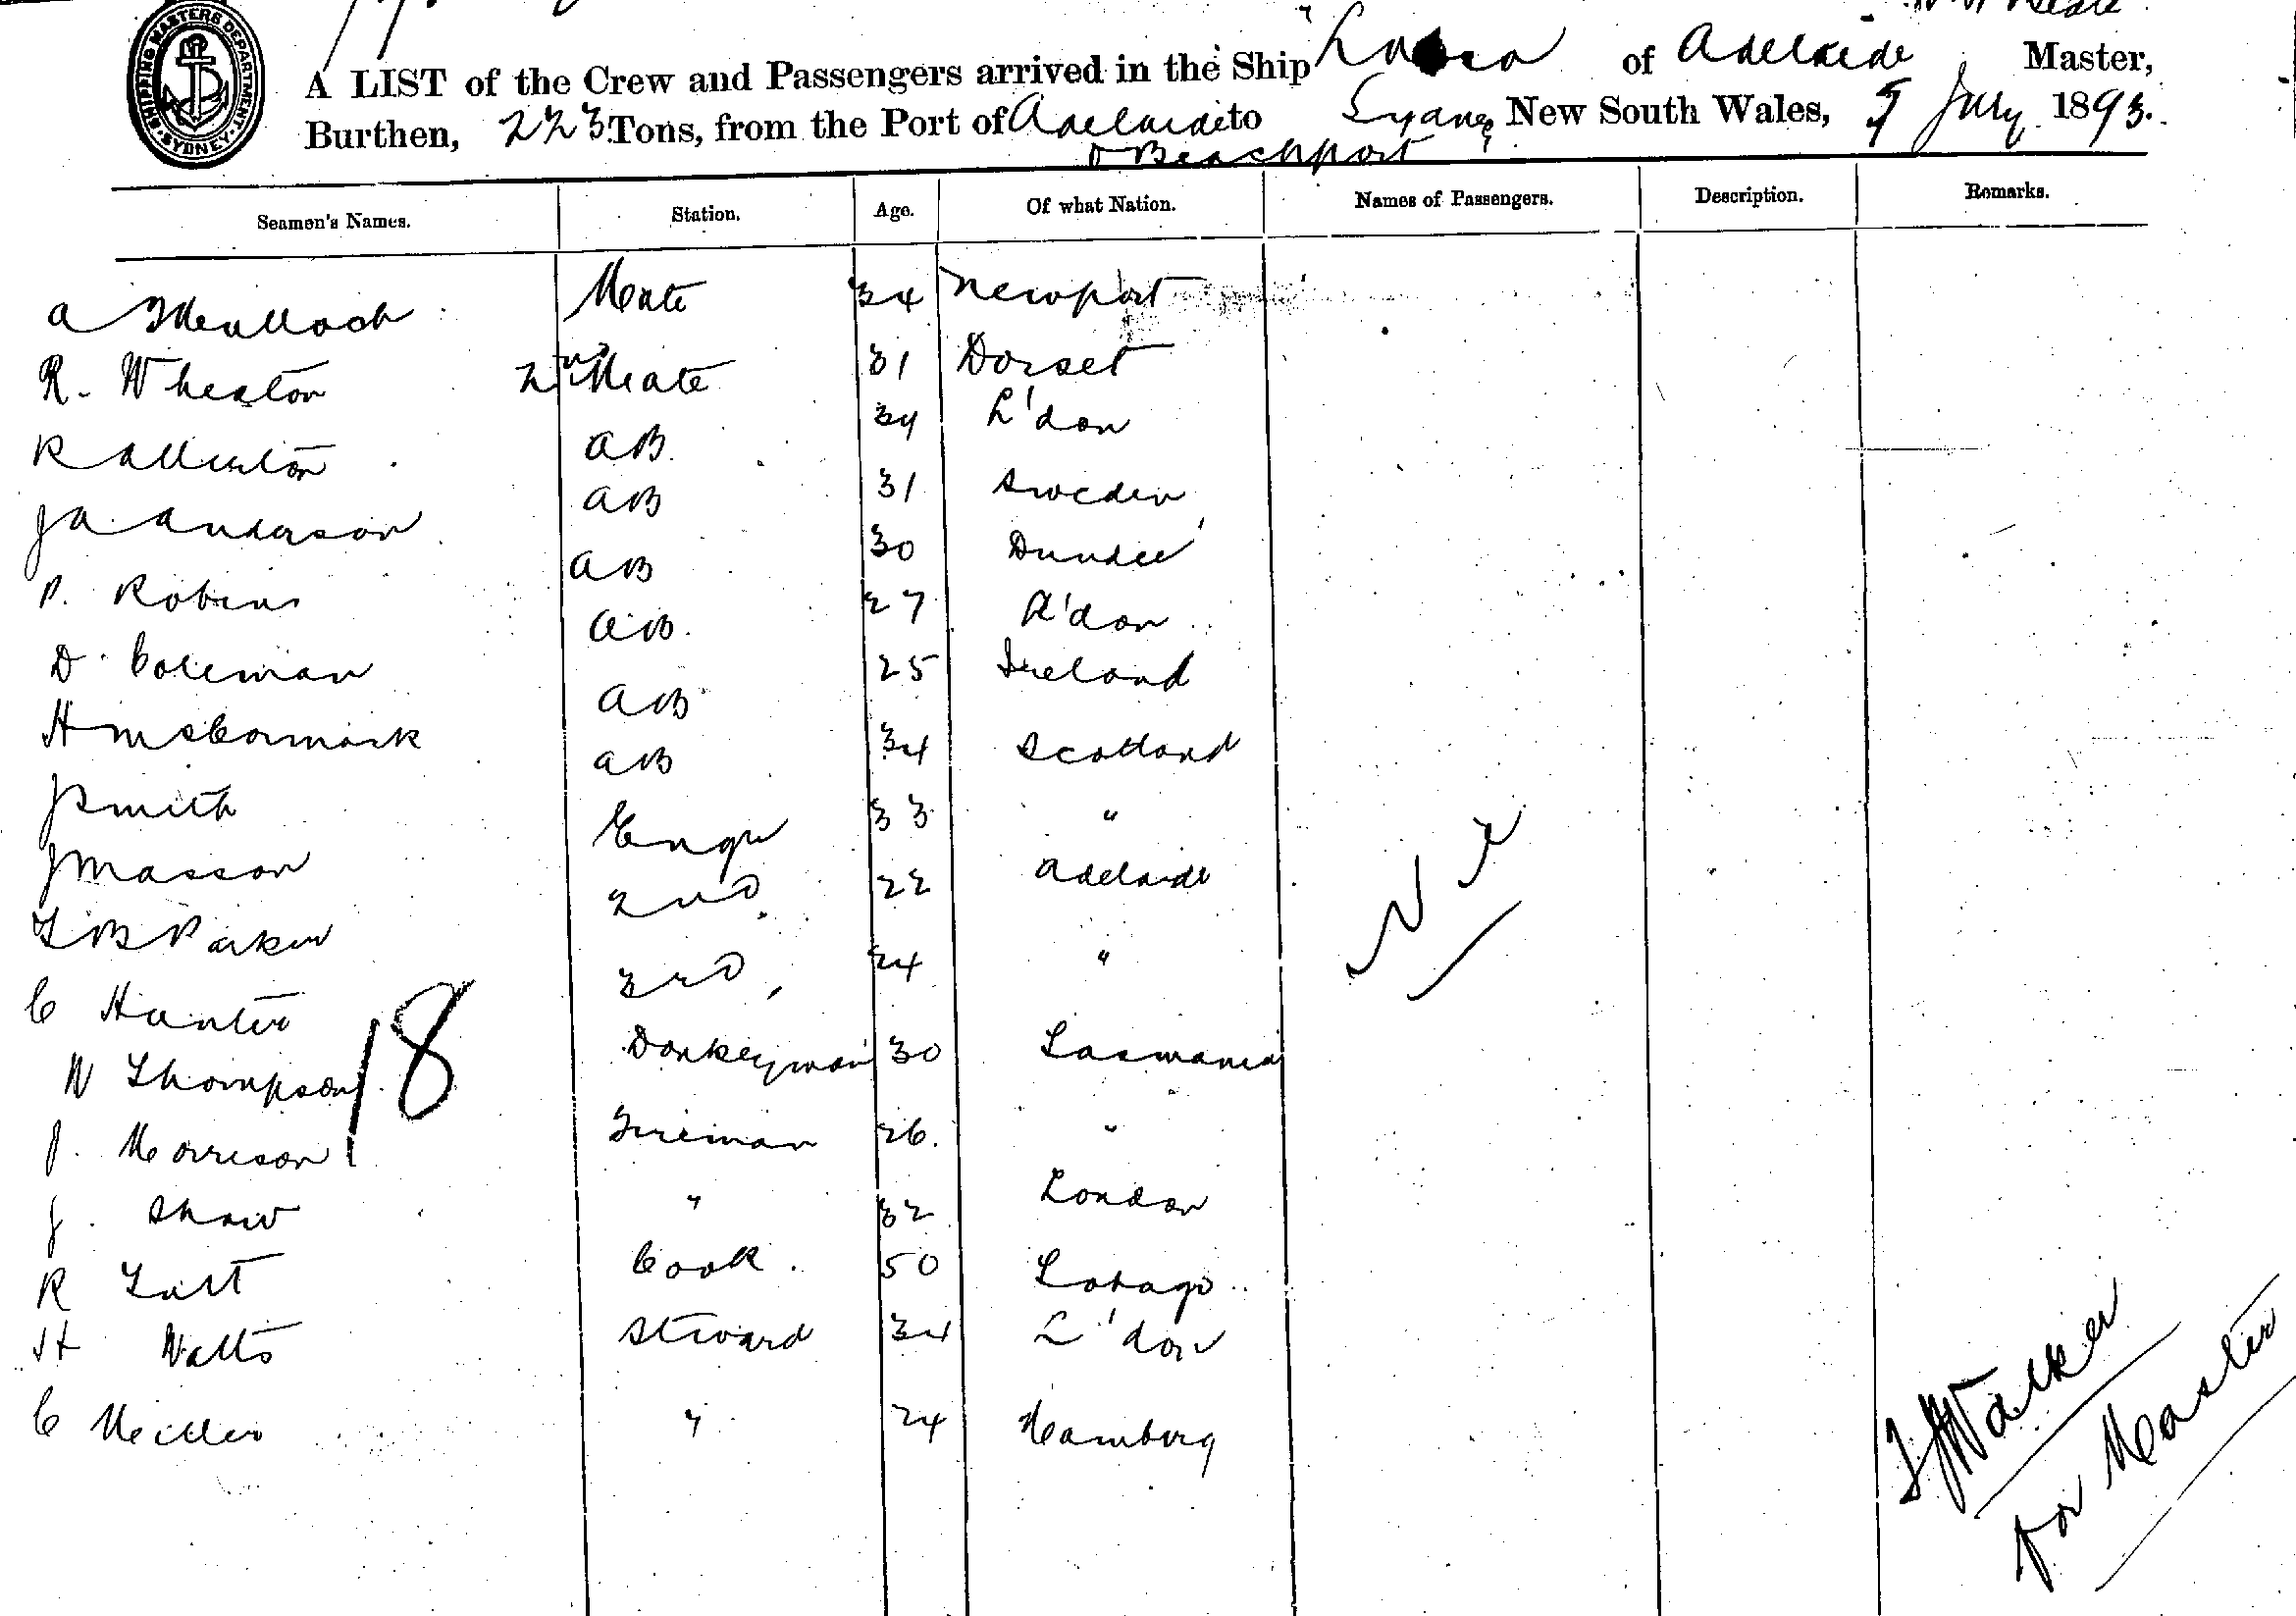 SHIPPING MASTERS DEPARTMENT SYDNEY
A LIST of the Crew and Passengers arrived in the Ship of Adelaide Master,
Burthen, 223 Tons, from the Port of Adelaide to Sydney New South Wales, 5 July 1893.
& Beachport
Seamen's Names. Station. Age. Of what Nation. Names of Passengers. Description. Remarks.
A Mate 34 Newport
R. Wheaton 2nd Mate 31 Dorset
R Allerton AB 34 L'don
J A Anderson AB 31 Sweden
P. Robins AB 30 Dundee
D. Coleman AB. 27 L'don
H McCormack AB 25 Ireland
J Smith AB 34 Scotland
J Masson Engr 33 "
T B Parker 2nd 22 Adelaide
C Hunter 3rd, 24 "
W Thompson Donkeyman 30 Tasmania
J. Morrison Fireman 26. "
J. Shaw " 32 London
R Cook. 50 Tobago
H Watts Steward 34 L'don
C Miller " 24 Hamburg
18
Nil
Walker
for Master